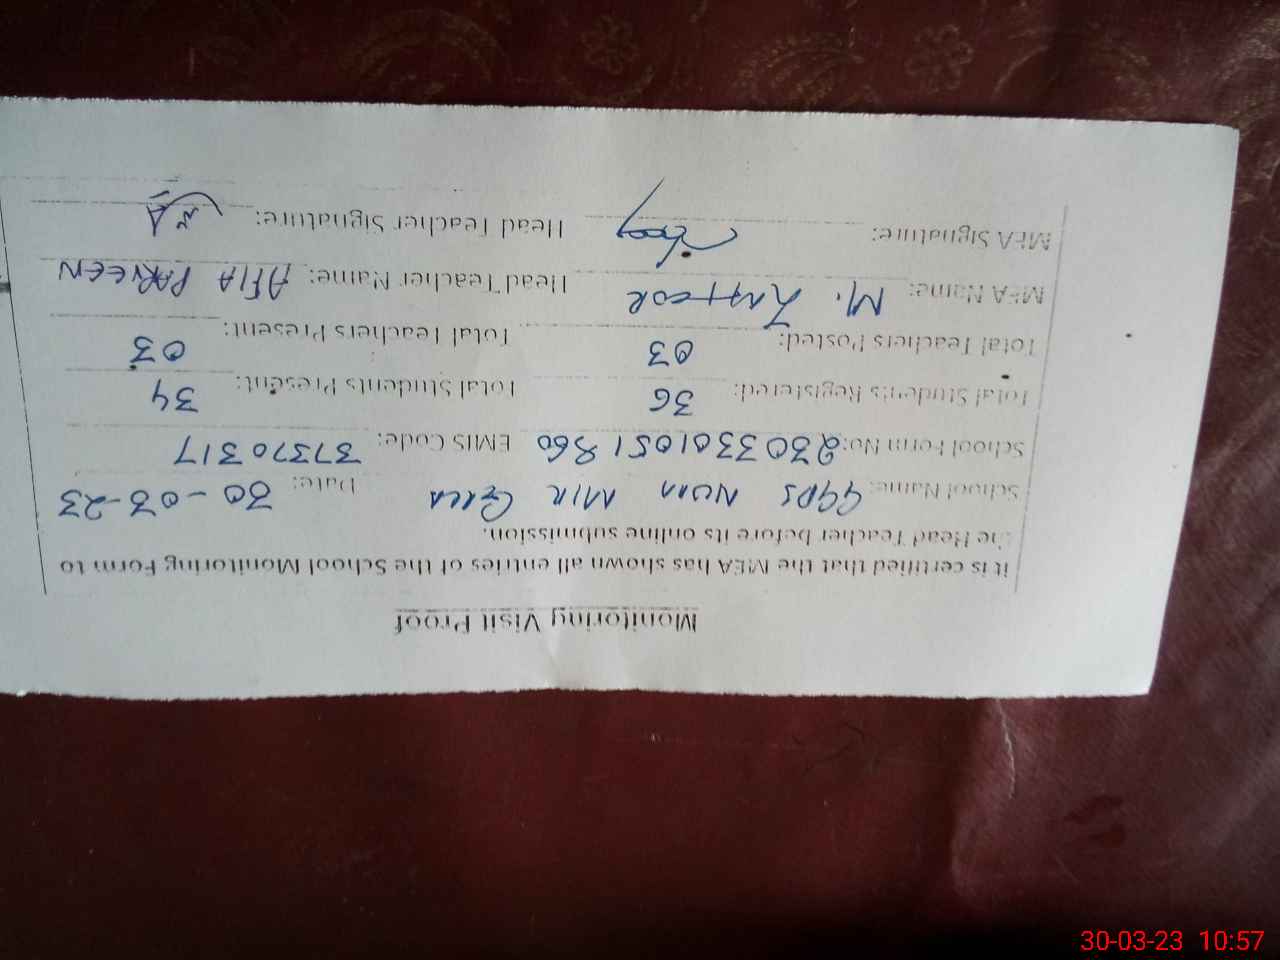 Monitoring Visit Proof
It is certified that the MEA has shown all entries of the School Monitoring Form to
the Head Teacher before its online submission.
School Name: GGPS MIR Date: 30-03-23
School Form No: 2303301051860 EMIS Code: 37370317
Total Students Registered: 36 Total Students Present: 34
Total Teachers Posted: 03 Total Teachers Present: 03
MEA Name: M. Head Teacher Name: AFIA PARVEEN
MEA Signature: Head Teacher Signature:
30-03-23 10:57